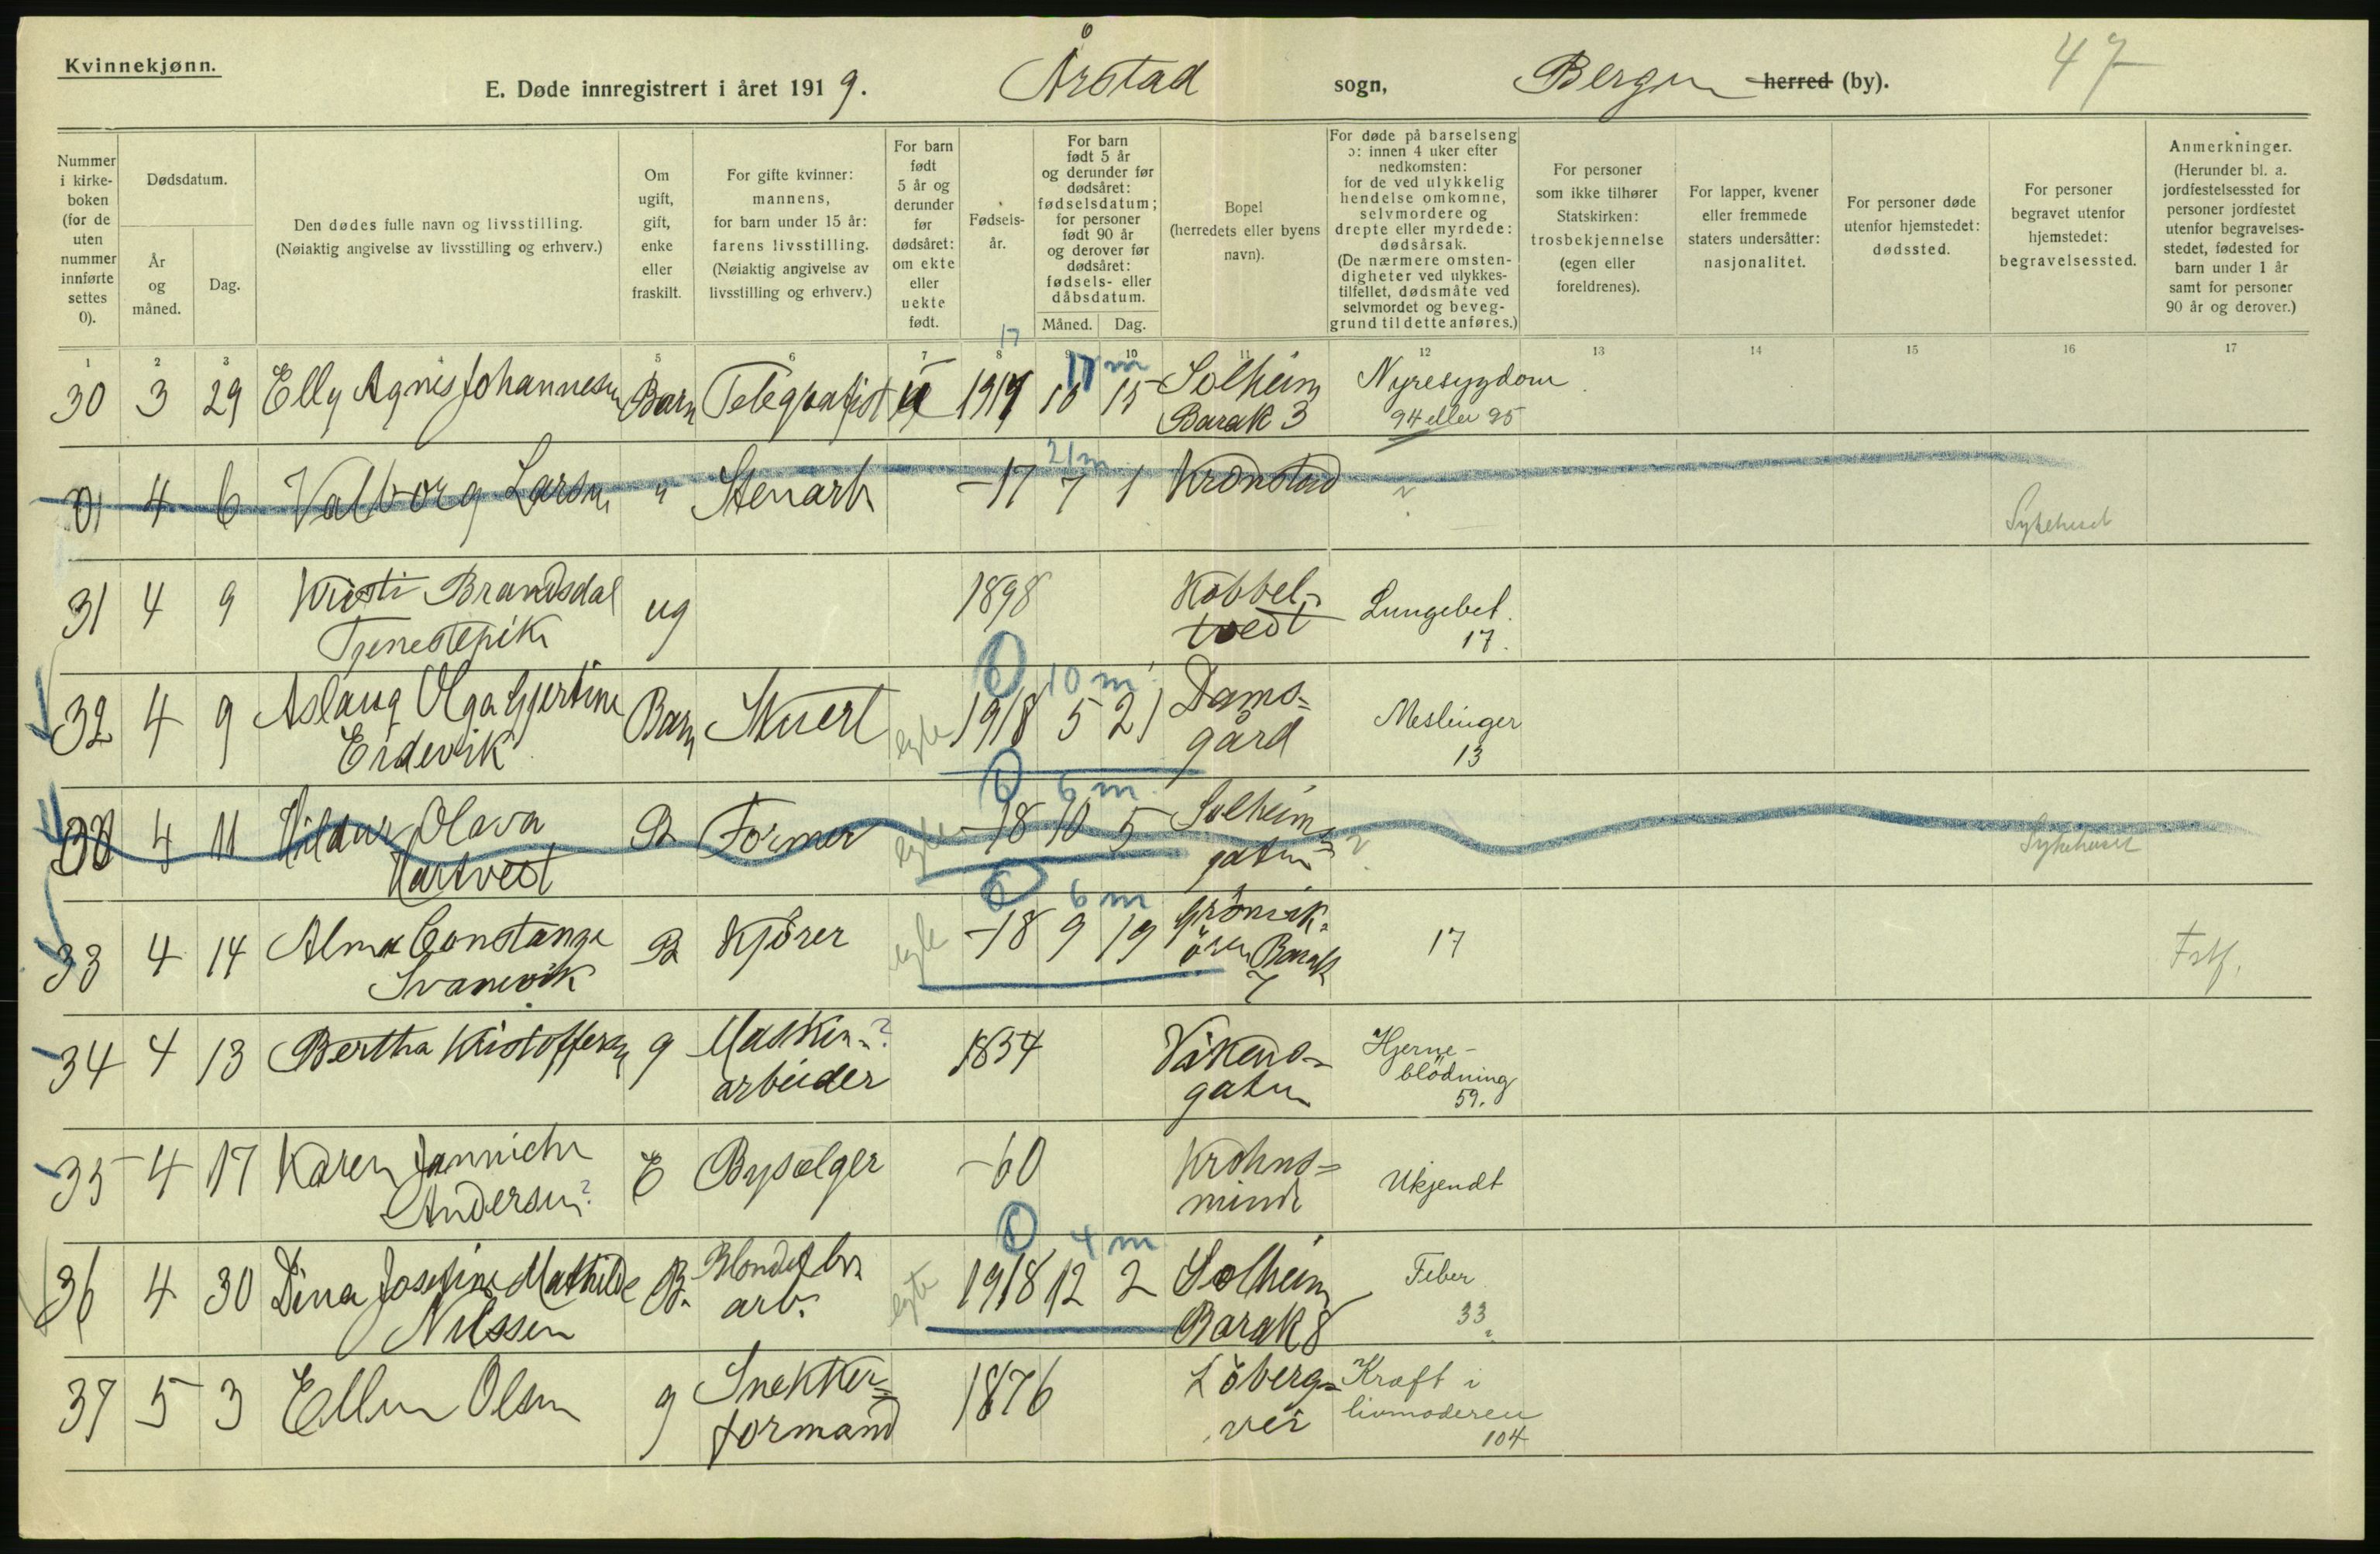 Kvinnekjønn.
E. Døde innregistrert i året 1919. Årstad sogn, Bergen herred (by). 47
Nummer i kirkeboken (for de uten nummer innførte settes 0).
Dødsdatum.
År og måned.
Dag.
Den dødes fulle navn og livsstilling.
(Nøiaktig angivelse av livsstilling og erhverv.)
Om ugift, gift, enke eller fraskilt.
For gifte kvinner: mannens, for barn under 15 år: farens livsstilling. (Nøiaktig angivelse av livsstilling og erhverv.)
For barn født 5 år og derunder før dødsåret: om ekte eller uekte født.
Fødselsår.
For barn født 5 år og derunder før dødsåret: fødselsdatum; for personer født 90 år og derover før dødsåret: fødsels- eller dåbsdatum.
Måned. Dag.
Bopel (herredets eller byens navn).
For døde på barselseng ɔ: innen 4 uker efter nedkomsten: for de ved ulykkelig hendelse omkomne, selvmordere og drepte eller myrdede: dødsårsak. (De nærmere omstendigheter ved ulykkestilfellet, dødsmåte ved selvmordet og beveggrund til dette anføres.)
For personer som ikke tilhører Statskirken: trosbekjennelse (egen eller foreldrenes).
For lapper, kvener eller fremmede staters undersåtter: nasjonalitet.
For personer døde utenfor hjemstedet: dødssted.
For personer begravet utenfor hjemstedet: begravelsessted.
Anmerkninger. (Herunder bl. a. jordfestelsessted for personer jordfestet utenfor begravelsesstedet, fødested for barn under 1 år samt for personer 90 år og derover.)
1 2 3 4 5 6 7 8 9 10 11 12 13 14 15 16 17
17 17 m
30 3 29 Elly Agnes Johannesen Barn Telegrafist 1917 10 15 Solheim Barak 3 Nyresygdom 94 eller 95
21 m
0 4 6 Valborg Larsen " Stenarb -17 7 1 Kronstad ? Sykehuset
31 4 9 Kristi Brandsdal Tjenestepike ug 1898 Kobbeltvedt Lungebet. 17.
0 10 m
32 4 9 Aslaug Olga Gjertine Eidevik Barn Stuert egte 1918 5 21 Damsgård Meslinger 13
0 6 m
4 11 Hildur Olava Hartvedt B Former egte -18 10 5 Solheimsgaten ? Sykehuset
0 6 m
33 4 14 Alma Constanze Svanevik B Kjörer egte -18 9 19 Barak 7 17
34 4 13 Bertha Kristoffersen g Maskinarbeider ? 1834 Vikensgaten Hjerneblödning 59.
35 4 17 Karen Jannicke Andersen ? E Bysælger -60 Krohnsminde Ukjendt
0 4 m
36 4 30 Dina Josefine Mathilde Nilssen B. arb. egte 1918 12 2 Solheim Barak 8 Feber 33 ?
37 5 3 Ellen Olsen g Snekkerformand 1876 Löbergsvei Kræft i livmoderen 104